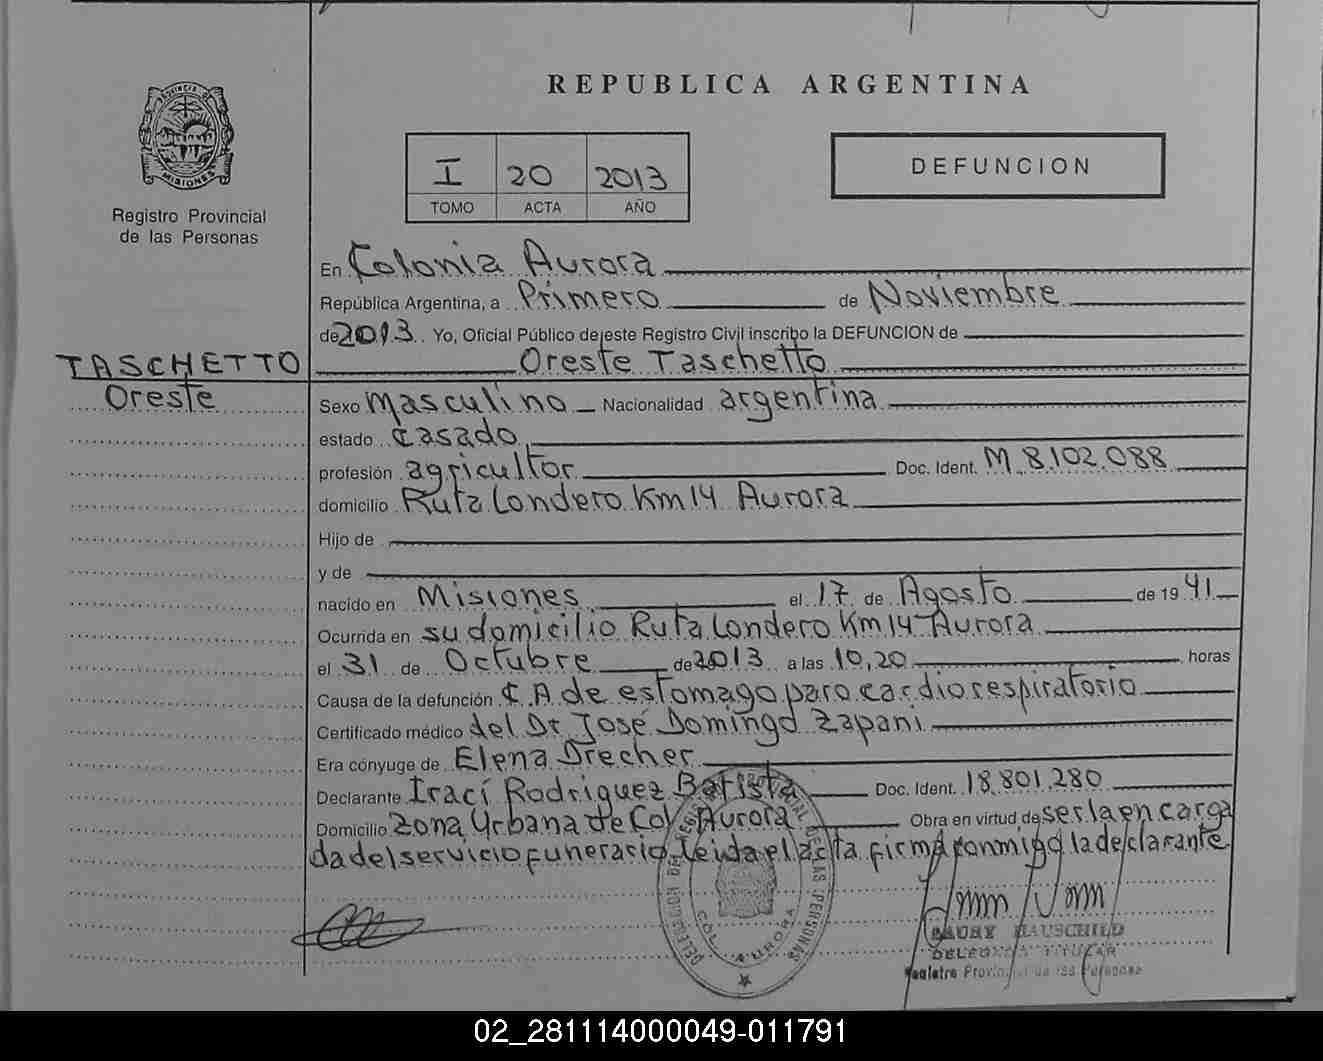 REPUBLICA ARGENTINA
PROVINCIA DE
MISIONES
Registro Provincial
de las Personas
I 20 2013
TOMO ACTA AÑO
DEFUNCION
En Colonia Aurora
República Argentina, a Primero de Noviembre
de 2013. Yo, Oficial Público de este Registro Civil inscribo la DEFUNCION de
TASCHETTO
Oreste
Oreste Taschetto
Sexo masculino Nacionalidad argentina
estado casado
profesión agricultor Doc. Ident. M 8.102.088
domicilio Ruta Londero Km 14 Aurora
Hijo de
y de
nacido en Misiones el 17 de Agosto de 19 41
Ocurrida en su domicilio Ruta Londero Km 14 Aurora
el 31 de Octubre de 2013 a las 10,20 horas
Causa de la defunción C.A de estomago paro cardiorespiratorio
Certificado médico del Dr José Domingo Zapani
Era cónyuge de Elena Drecher
Declarante Irací Rodriguez Batista Doc. Ident. 18.801.280
Domicilio Zona Urbana de Col. Aurora Obra en virtud de ser la encarga
da del servicio funerario, leida el acta firma conmigo la declarante
COL. AURORA
HAUSCHILD
DELEGADA TITULAR
Registro Provincial de las Personas
02_281114000049-011791